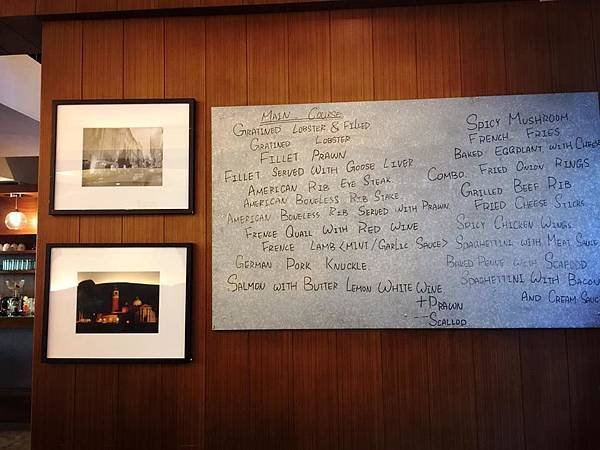 MAIN COURSE
GRATINED LOBSTER & FILLED
GRATINED LOBSTER
FILLET PRAWN
FILLET SERVED WITH GOOSE LIVER
AMERICAN RIB EYE STEAK
AMERICAN BONELESS RIB STAKE
AMERICAN BONELESS RIB SERVED WITH PRAWN
FRENCE QUAIL WITH RED WINE
FRENCE LAMB (MINT/GARLIC SAUCE)
GERMAN PORK KNUCKLE
SALMON WITH BUTTER LEMON WHITE WINE
+PRAWN
SCALLOP
SPICY MUSHROOM
FRENCH FRIES
BAKED EGGPLANT WITH CHEESE
COMBO. FRIED ONION RINGS
GRILLED BEEF RIB
FRIED CHEESE STICKS
SPICY CHICKEN WINGS
SPAGHETTINI WITH MEAT SAUCE
BAKED PENNE WITH SEAFOOD
SPAGHETTINI WITH BACON
AND CREAM SAUC